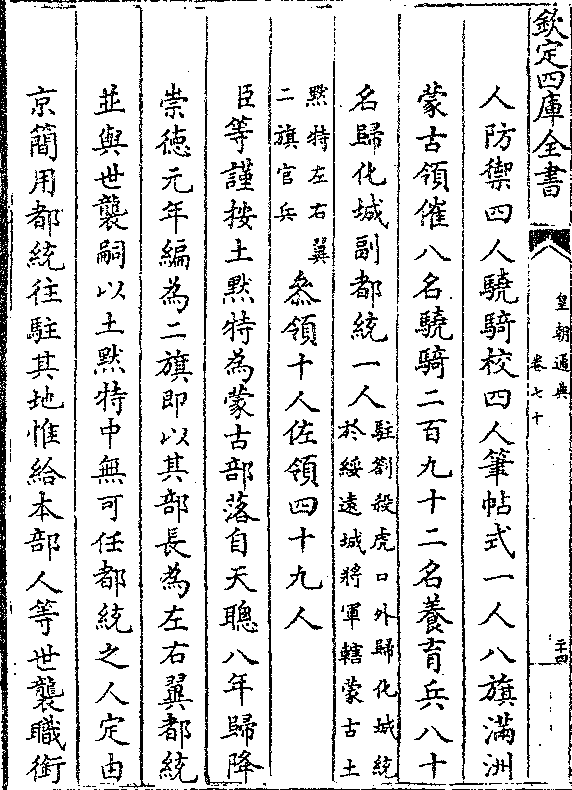 欽定四庫全書
皇朝通典
卷七十
二十四
人防禦四人驍騎校四人筆帖式一人八旗滿洲
蒙古領催八名驍騎二百九十二名養育兵八十
名歸化城副都統一人
駐劄殺虎口外歸化城統
於綏遠城將軍轄蒙古土
黙特左右翼
二旗官兵
叅領十人佐領四十九人
臣等謹按土黙特為蒙古部落自天聰八年歸降
崇徳元年編為二旗即以其部長為左右翼都統
並與世襲嗣以土黙特中無可任都統之人定由
京簡用都統往駐其地惟給本部人等世襲職銜